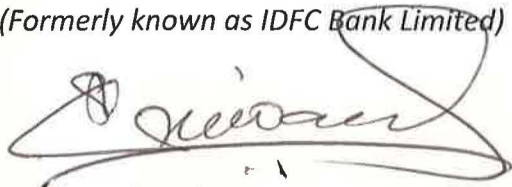 (Formerly known as IDFC Bank Limited)